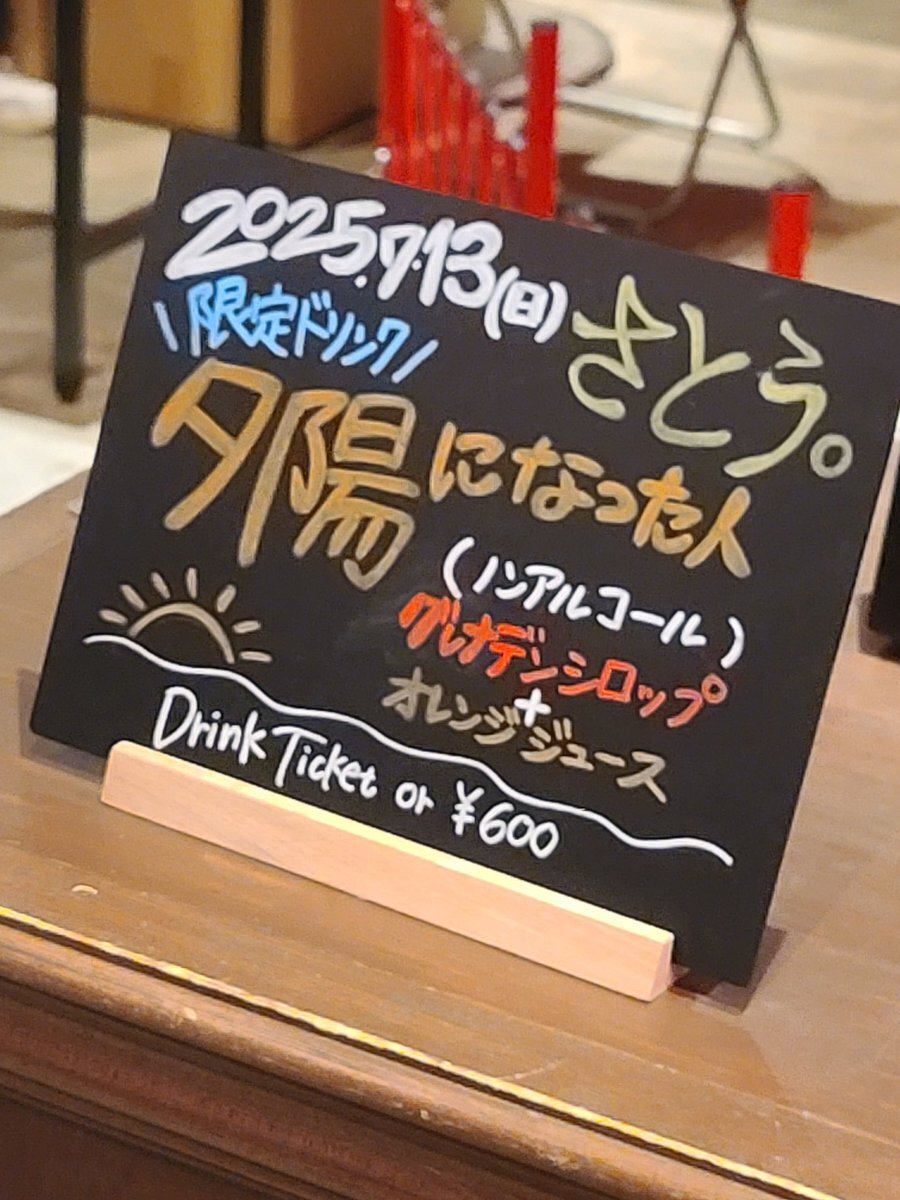 2025.7.13(日)
さとう。
\限定ドリンク/
夕陽になった人
(ノンアルコール)
グレナデンシロップ
+
オレンジジュース
Drink Ticket or ¥600